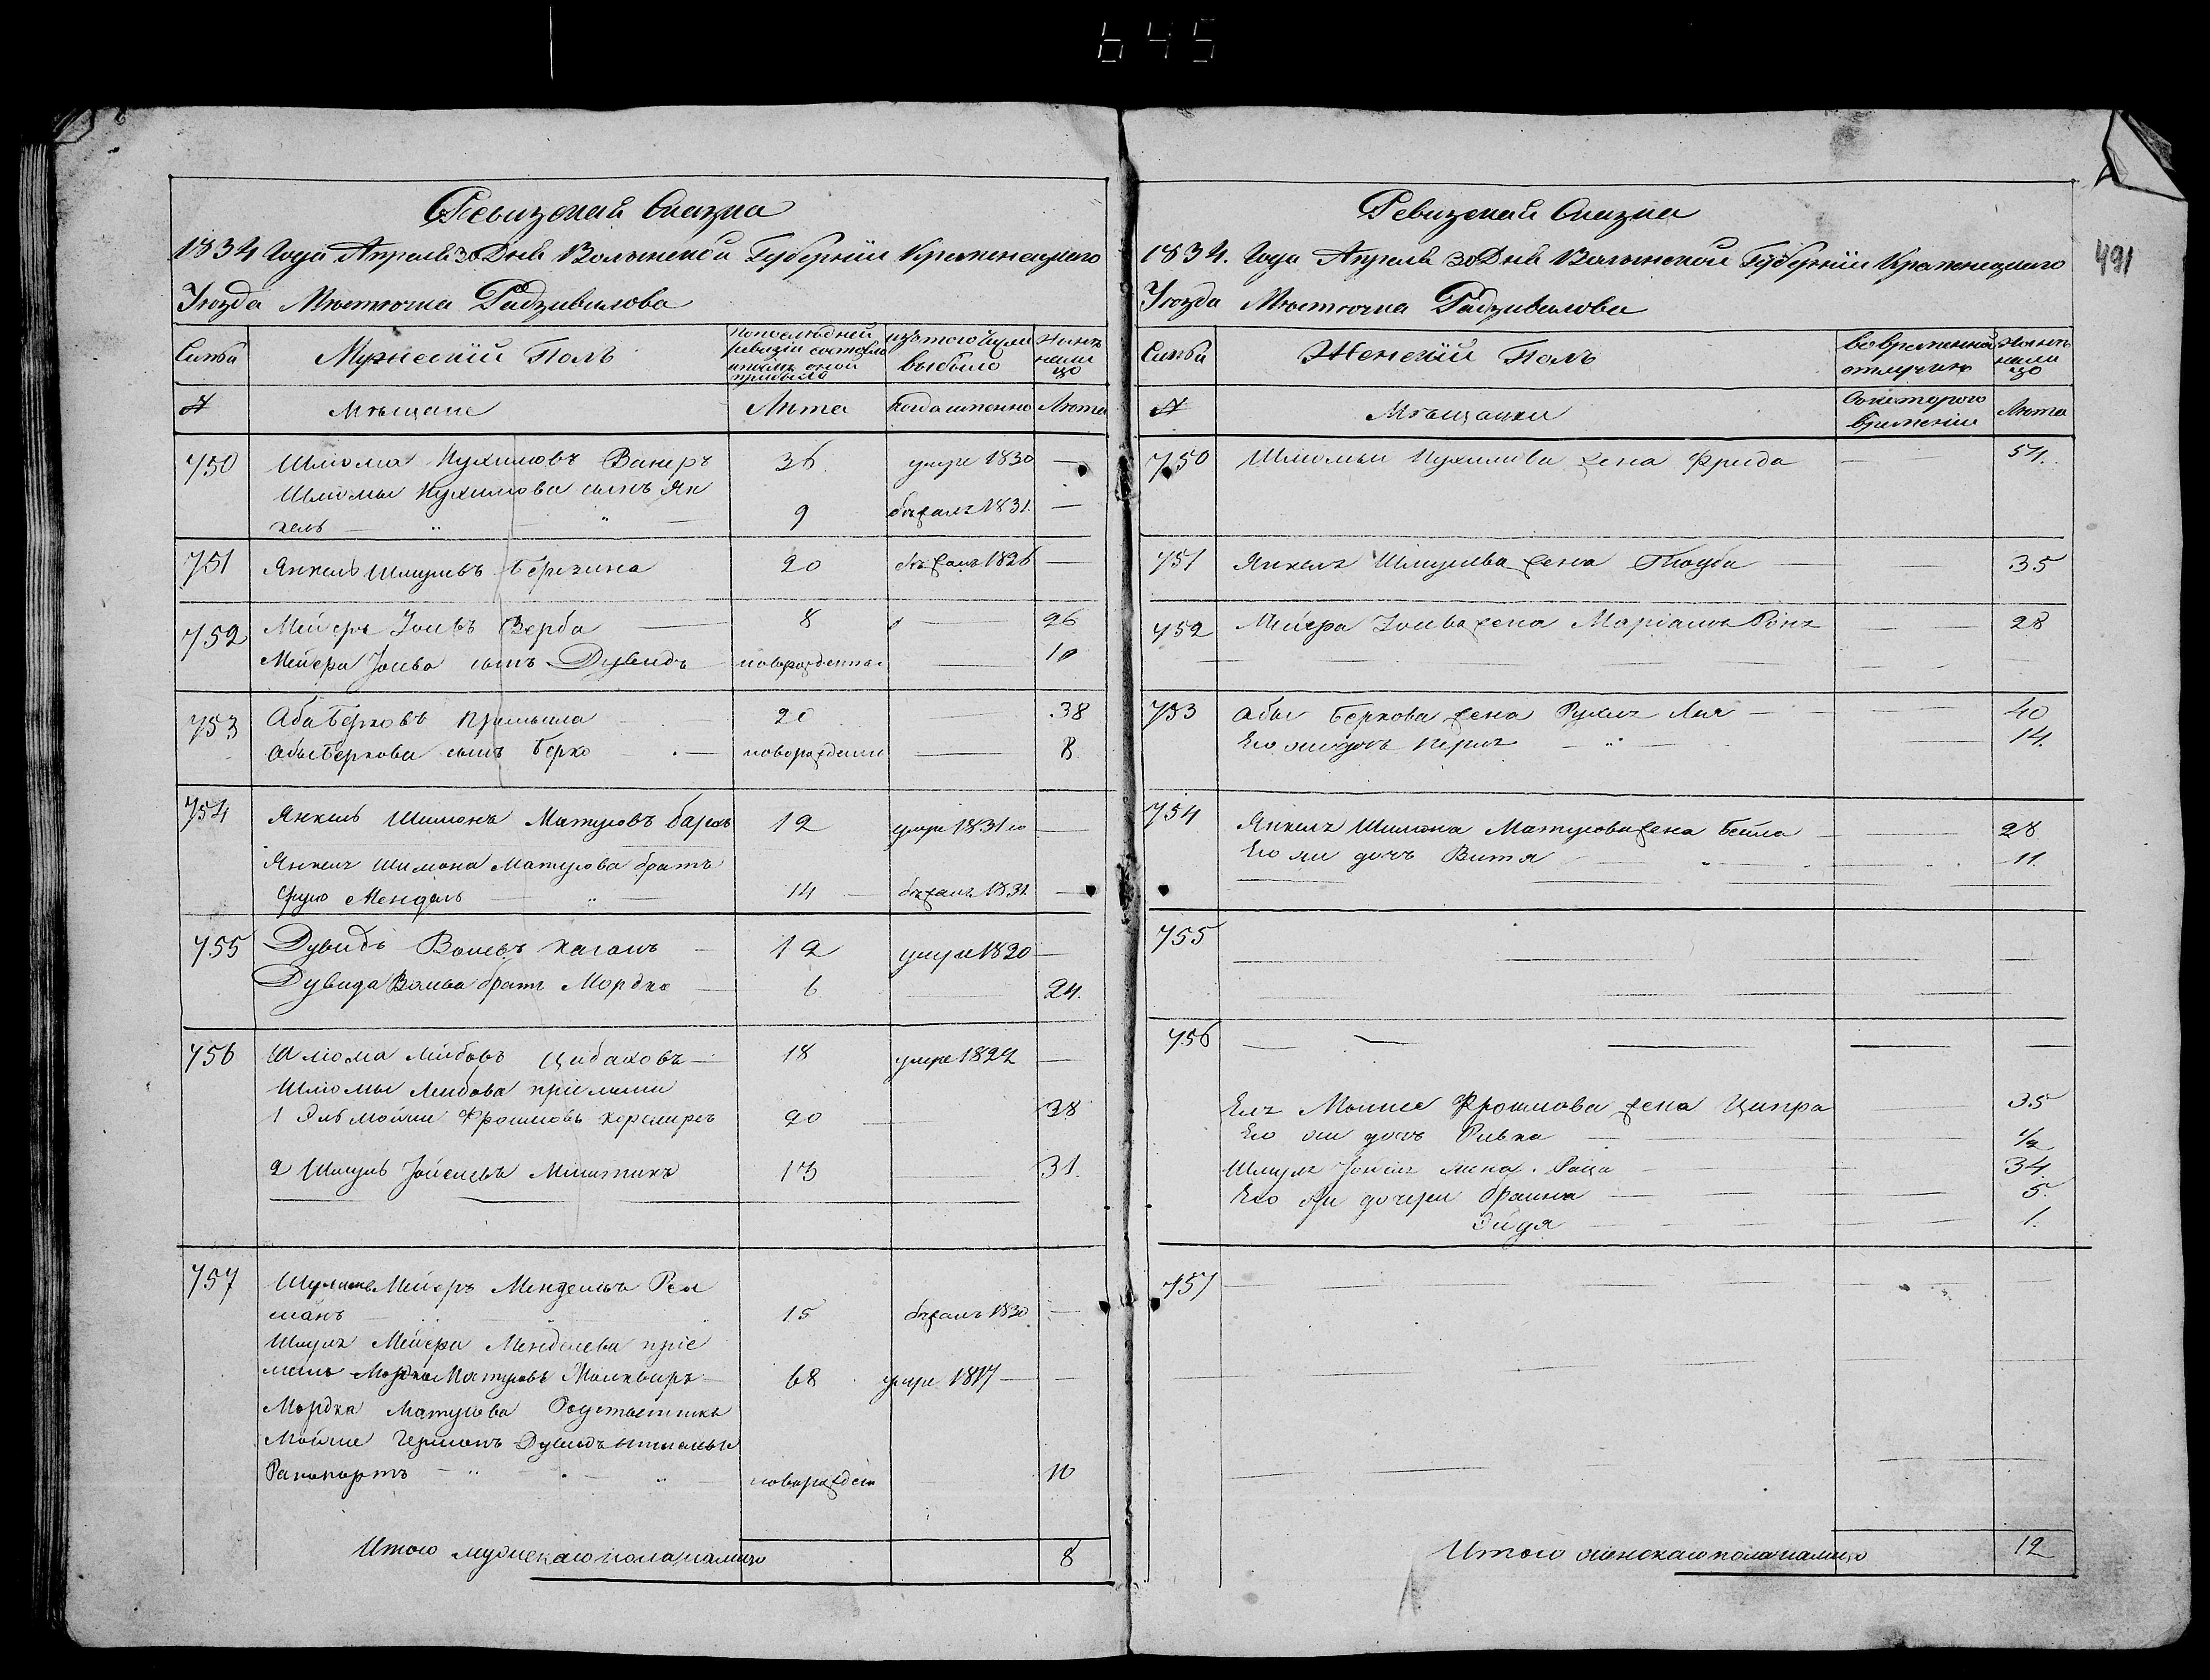 645
491
Ревизская Сказка
1834 Года Апреля 30 Дня Волынской Губернии Кременецкого
Уезда Местечка Радзивилова
Семьи
Мужеский Полъ
По последней ревизіи состояло и после оной прибыло
изъ того числа выбыло
Ныне на лицо
№
Мещане
Лета
Когда именно
Лета
750 Шліома Нухимовъ Ванеръ 36 умре 1830 —
Шліомы Нухимова сынъ Ян
кель 9 бежалъ 1831 —
751 Янкель Шмулевъ Березина 20 бежалъ 1826 —
752 Мейеръ Іосевъ Верба 8 — 26
Мейера Іосева сынъ Дувидъ новорожденны 10
753 Аба Берковъ 20 — 38
Абы Беркова сынъ Берко новорожденны — 8
754 Янкель Шимонъ Матусовъ 12 умре 1831 го —
Янкеля Шимона Матусова братъ
Сруло Мендель 14 бежалъ 1831 —
755 Дувидъ Волевъ Каганъ 12 умре 1820 —
Дувида Волева братъ Мордко 6 — 24.
756 Шліома Лейбовъ Цибаковъ 18 умре 1822 —
Шліомы Лейбова пріемыши
1 Эль Мойше Фроимовъ 20 — 38
2 Шмуль Іойселевъ 13 — 31.
757 Мейеръ Менделевъ Рей
манъ 15 бежалъ 1830 —
Шмуля Мейера Менделева пріе
мышъ Мордко Матусовъ 68 умре 1817 —
Мордка Матусова Родственникъ
Мойше Гершонъ Дувидъ
Рапапортъ новорожден 10
Итого мужескаго пола налицо 8
Ревизская Сказка
1834. Года Апреля 30 Дня Волынской Губерніи Кременецкого
Уезда Местечка Радзивилова
Семьи
Женскій Полъ
Во временной отлучке
Ныне на лицо
№
Мещанки
Съ котораго времени
Лета
750 Шліомы Нухимова жена Фрида — 54.
751 Янкеля Шмулева жена Тауба — 35
752 Мейера Іосева жена Маріамъ — 28
753 Абы Беркова жена Рухля Лея — 40
Его же дочь Перля — 14.
754 Янкеля Шимона Матусова жена Бейла — 28
Его же дочь Витя 11.
755
756
Еля Мошка Фроимова жена Ципра 35
Его же дочь Ривка 1/2
Шмуля Іойселя жена Раца 34
Его же дочери Браина 5.
Эйдя 1.
757
Итого женскаго пола налицо 12